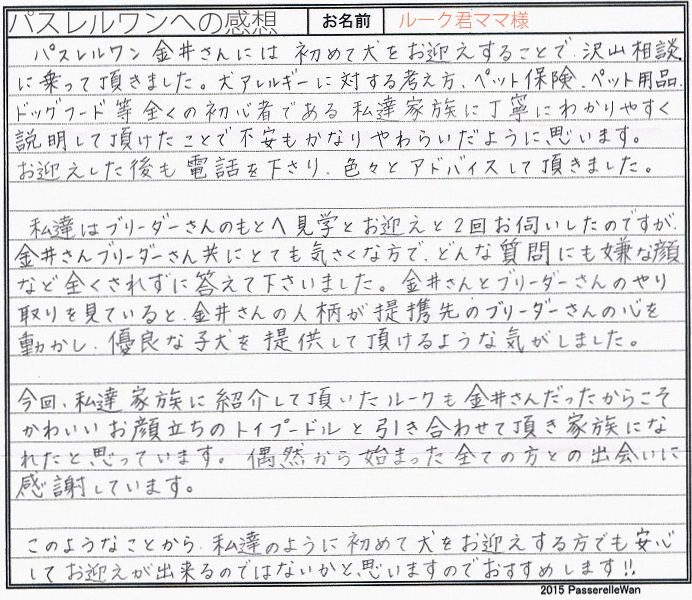 パスレルワンへの感想 お名前 ルーク君ママ様
パスレルワン金井さんには初めて犬をお迎えすることで、沢山相談
に乗って頂きました。犬アレルギーに対する考え方、ペット保険、ペット用品、
ドッグフード等全くの初心者である私達家族に丁寧にわかりやすく
説明して頂けたことで不安もかなりやわらいだように思います。
お迎えした後も電話を下さり、色々とアドバイスして頂きました。
私達はブリーダーさんのもとへ見学とお迎えと2回お伺いしたのですが、
金井さんブリーダーさん共にとても気さくな方で、どんな質問にも嫌な顔
など全くされずに答えて下さいました。金井さんとブリーダーさんのやり
取りを見ていると、金井さんの人柄が提携先のブリーダーさんの心を
動かし、優良な子犬を提供して頂けるような気がしました。
今回、私達家族に紹介して頂いたルークも金井さんだったからこそ
かわいいお顔立ちのトイプードルと引き合わせて頂き家族にな
れたと思っています。偶然から始まった全ての方との出会いに
感謝しています。
このようなことから、私達のように初めて犬をお迎えする方でも安心
してお迎えが出来るのではないかと思いますのでおすすめします!!
2015 PasserelleWan